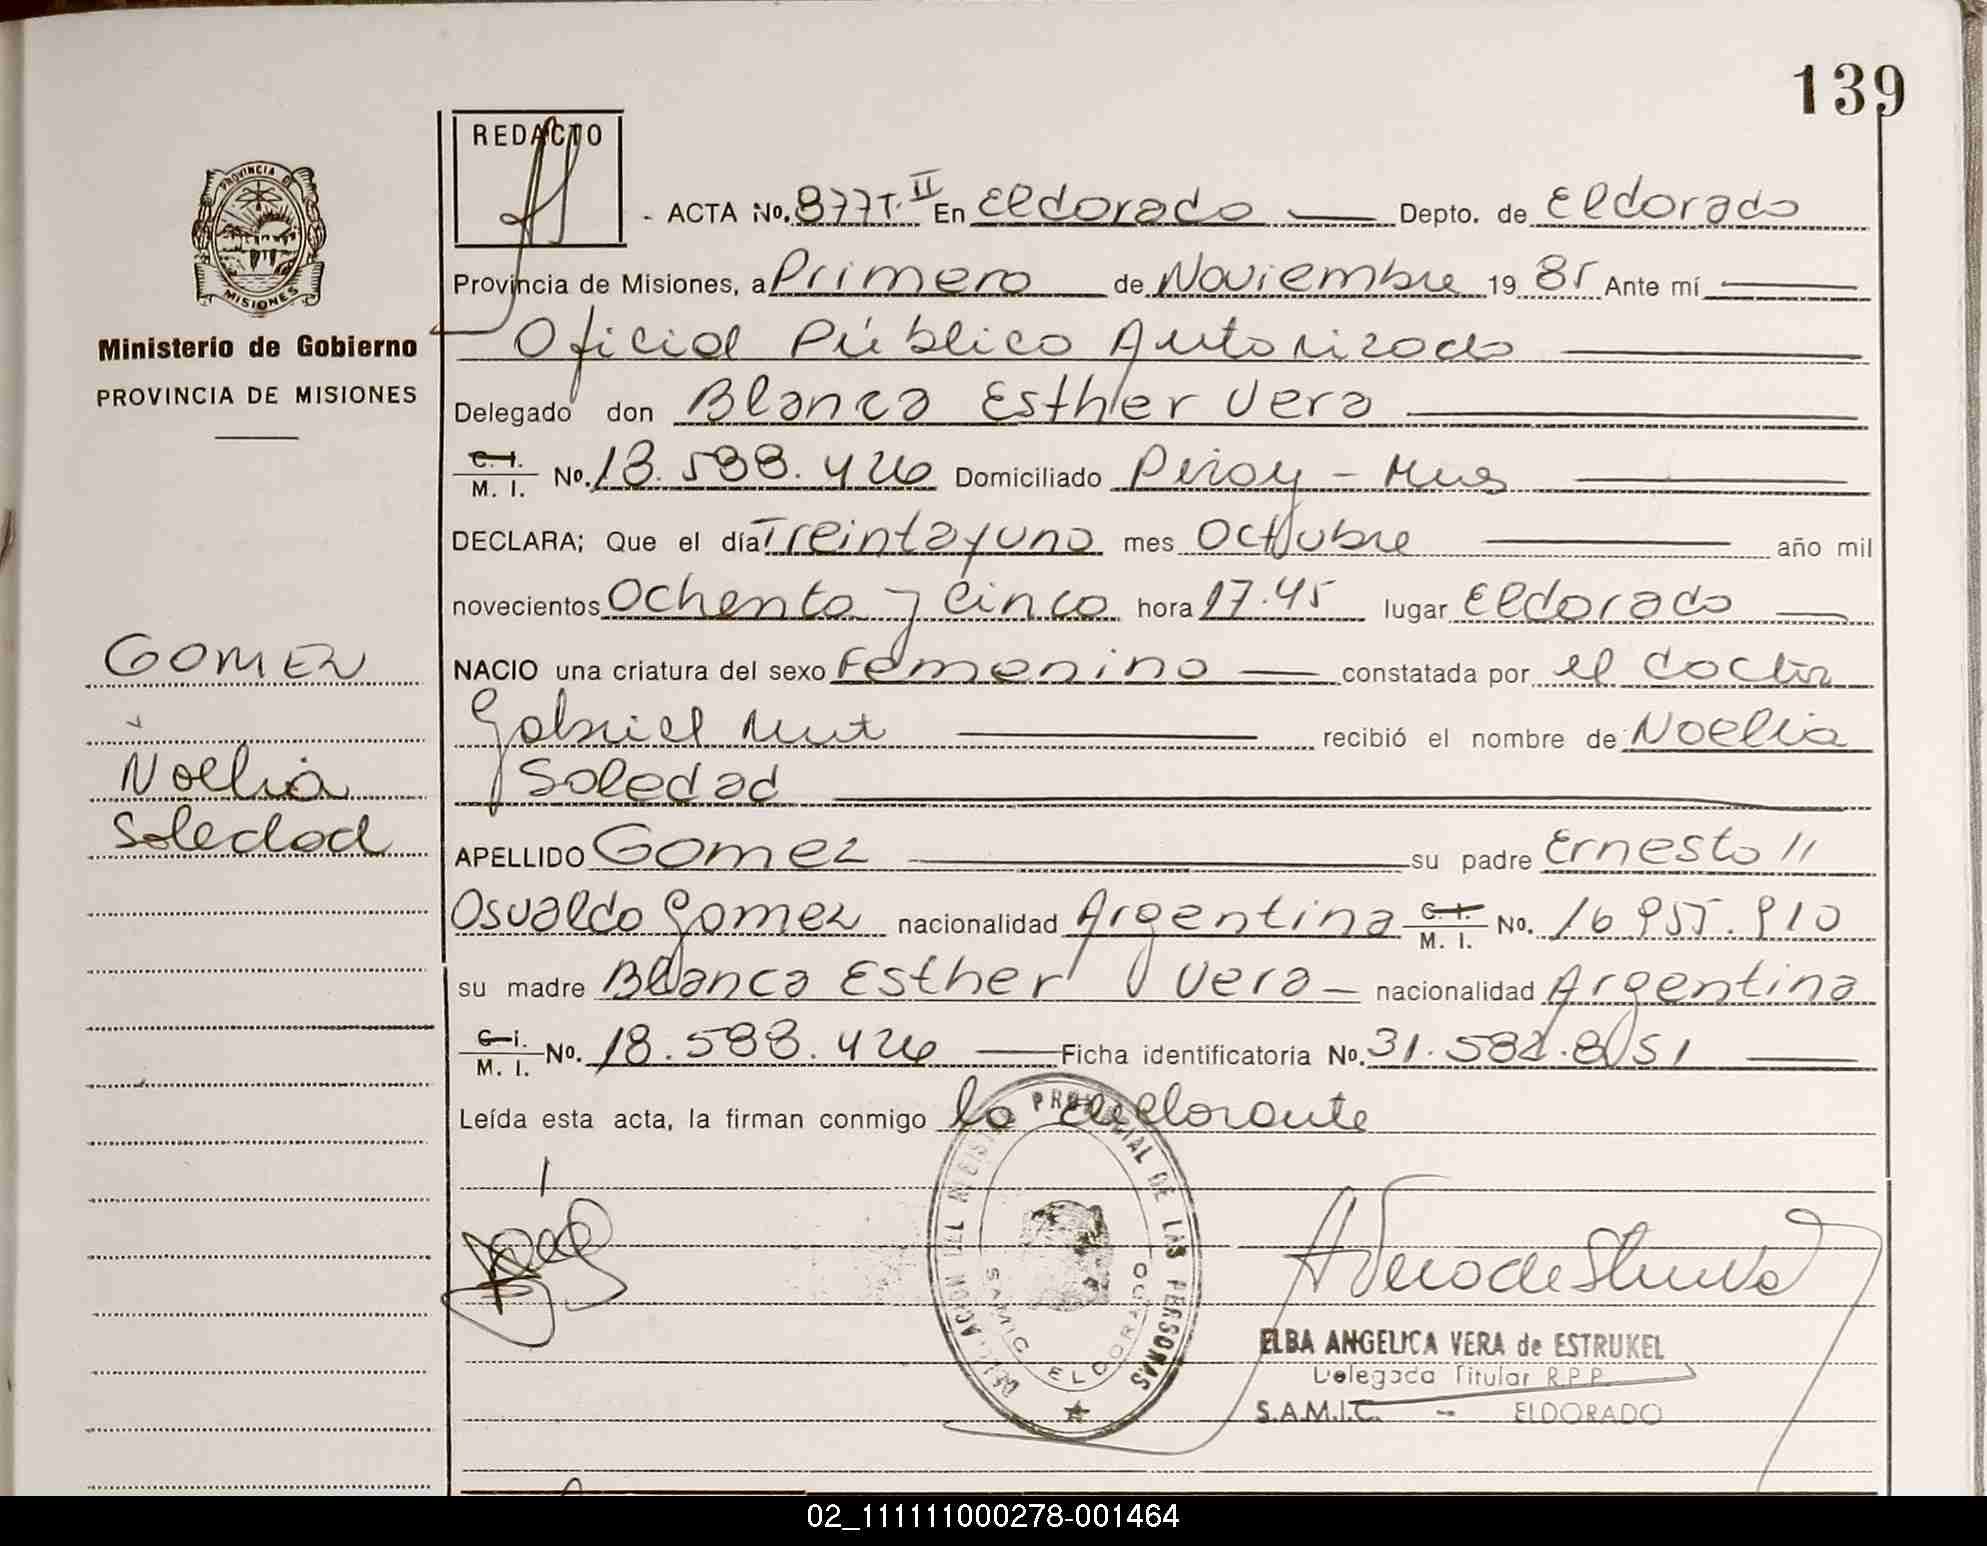 139
REDACTO
- ACTA No. 877 T. II En Eldorado Depto. de Eldorado
Provincia de Misiones, a Primero de Noviembre 19 85 Ante mí
Oficial Público Autorizado
Delegado don Blanca Esther Vera
C. I. M. I. No. 18.588.426 Domiciliado Piray - Mnes
DECLARA; Que el día Treinta y uno mes Octubre año mil
novecientos Ochenta y Cinco hora 17.45 lugar Eldorado
NACIO una criatura del sexo Femenino constatada por el doctor
Gabriel recibió el nombre de Noelia
Soledad
APELLIDO Gomez su padre Ernesto //
Osvaldo Gomez nacionalidad Argentina C. I. M. I. No. 16.955.910
su madre Blanca Esther Vera - nacionalidad Argentina
C. I. M. I. No. 18.588.426 Ficha identificatoria No. 31.582.851
Leída esta acta, la firman conmigo la declarante
PROVINCIA DE
MISIONES
Ministerio de Gobierno
PROVINCIA DE MISIONES
GOMEZ
Noelia
Soledad
DELEGACION DEL REGISTRO PROVINCIAL DE LAS PERSONAS
SAMIC ELDORADO
ELBA ANGELICA VERA de ESTRUKEL
Delegada Titular R.P.P.
S.A.M.I.C. - ELDORADO
02_111111000278-001464